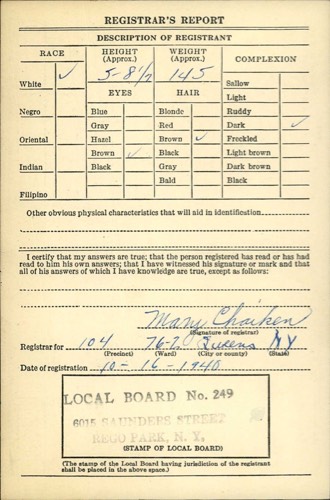 REGISTRAR'S REPORT
DESCRIPTION OF REGISTRANT
RACE HEIGHT (Approx.) WEIGHT (Approx.) COMPLEXION
White ✓ 5-8 1/2 145 Sallow
EYES HAIR Light
Negro Blue Blonde Ruddy
Gray Red Dark ✓
Oriental Hazel Brown ✓ Freckled
Brown ✓ Black Light brown
Indian Black Gray Dark brown
Bald Black
Filipino
Other obvious physical characteristics that will aid in identification
I certify that my answers are true; that the person registered has read or has had
read to him his own answers; that I have witnessed his signature or mark and that
all of his answers of which I have knowledge are true, except as follows:
Mary Chaiken
(Signature of registrar)
Registrar for 104 76-7 Queens NY
(Precinct) (Ward) (City or county) (State)
Date of registration 10-16-1940
LOCAL BOARD No. 249
6015 SAUNDERS STREET
REGO PARK, N. Y.
(STAMP OF LOCAL BOARD)
(The stamp of the Local Board having jurisdiction of the registrant
shall be placed in the above space.)